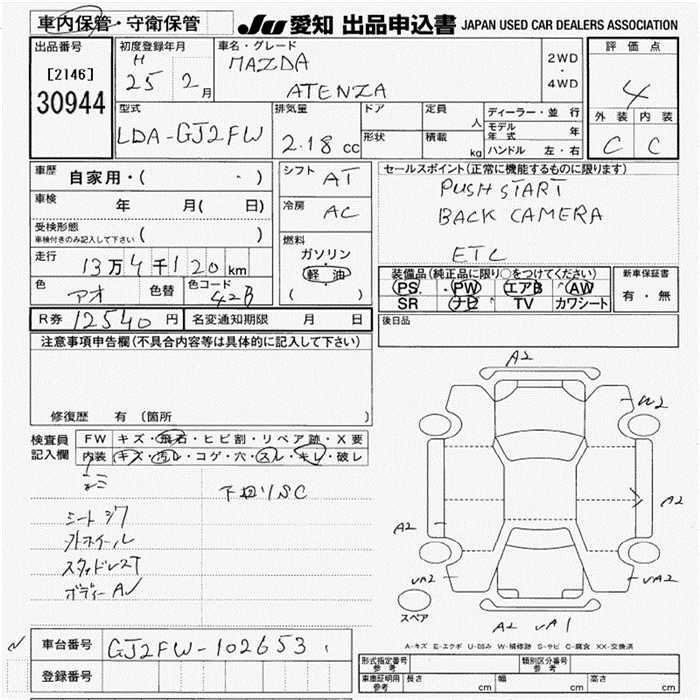 車内保管・守衛保管
JU 愛知 出品申込書 JAPAN USED CAR DEALERS ASSOCIATION
出品番号
[2146]
30944
初度登録年月
H
25 2月
車名・グレード
MAZDA
ATENZA
2WD
・
4WD
評価点
4
外装 内装
C C
型式
LDA-GJ2FW
排気量
2.18 cc
ドア
形状
定員 人
積載 kg
ディーラー・並行
モデル年式 年
ハンドル 左・右
車歴 自家用・( ・ )
車検 年 月( 日)
受検形態
車検付きのみ記入して下さい ( )
走行
13万4千120km
色 アオ 色替
色コード 42B
シフト AT
冷房 AC
燃料
ガソリン
軽・油
( )
セールスポイント(正常に機能するものに限ります)
PUSH START
BACK CAMERA
ETC
装備品(純正品に限り○をつけてください)
PS PW エアB AW
SR ナビ TV カワシート
新車保証書
有・無
R券 12540 円
名変通知期限 月 日
後日品
注意事項申告欄(不具合内容等は具体的に記入して下さい)
修復歴 有(箇所 )
検査員
記入欄
FW キズ・飛石・ヒビ割・リペア跡・X要
内装 キズ・汚レ・コゲ・穴・スレ・キレ・破レ
下回りSC
シートシワ
外ホイール
ボディーA
A2
W2
A2
A2
UA2
UA2
A2 UA1
スペア
A-キズ E-エクボ U-凹み W-補修跡 S-サビ C-腐食 XX-交換済
車台番号 GJ2FW-102653
登録番号
形式指定番号 参考
類別区分番号 参考
車庫証明用 参考 長さ cm 幅 cm 高さ cm